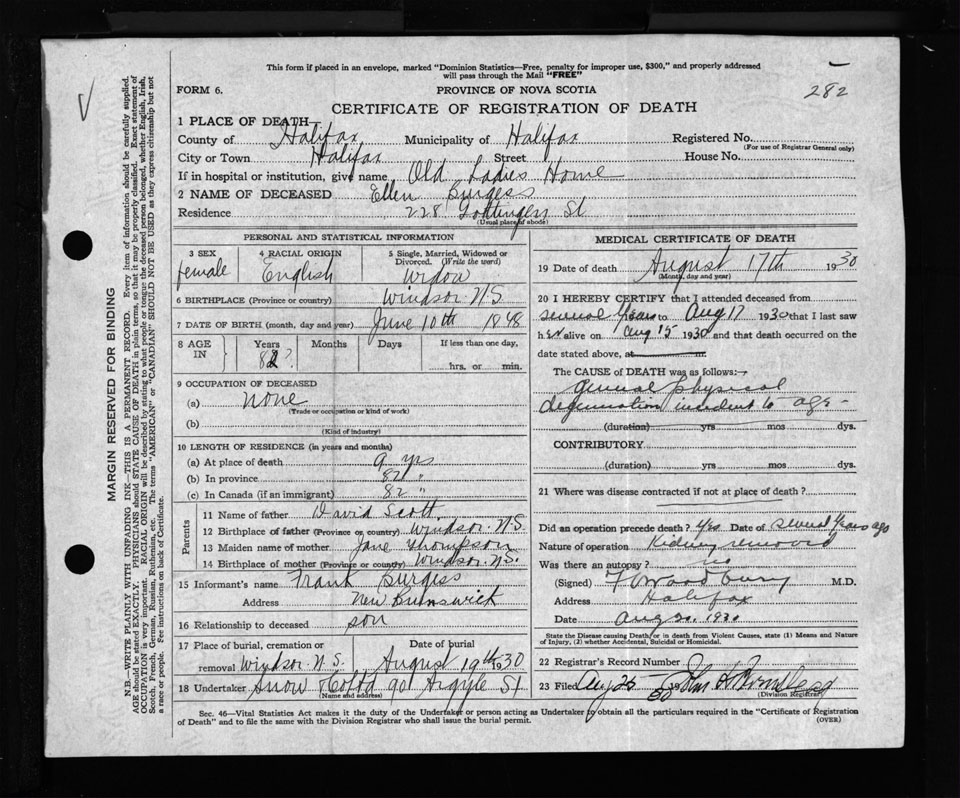 This form if placed in an envelope, marked "Dominion Statistics—Free, penalty for improper use, $300," and properly addressed
will pass through the Mail "FREE"
282
FORM 6.
PROVINCE OF NOVA SCOTIA
CERTIFICATE OF REGISTRATION OF DEATH
1 PLACE OF DEATH
County of Halifax Municipality of Halifax Registered No.
(For use of Registrar General only)
City or Town Halifax Street House No.
If in hospital or institution, give name Old Ladies Home
2 NAME OF DECEASED Ellen Burgess
Residence 228 Gottingen St
(Usual place of abode)
PERSONAL AND STATISTICAL INFORMATION
3 SEX 4 RACIAL ORIGIN 5 Single, Married, Widowed or
Divorced. (Write the word)
female English Widow
6 BIRTHPLACE (Province or country) Windsor N.S.
7 DATE OF BIRTH (month, day and year) June 10th 1848
8 AGE IN Years Months Days If less than one day,
82? hrs. or min.
9 OCCUPATION OF DECEASED
(a) none
(Trade or occupation or kind of work)
(b)
(Kind of industry)
10 LENGTH OF RESIDENCE (in years and months)
(a) At place of death 9 yrs
(b) In province 82 "
(c) In Canada (if an immigrant) 82 "
Parents
11 Name of father David Scott
12 Birthplace of father (Province or country) Windsor N.S.
13 Maiden name of mother Jane Thompson
14 Birthplace of mother (Province or country) Windsor N.S.
15 Informant's name Frank Burgess
Address New Brunswick
16 Relationship to deceased son
17 Place of burial, cremation or Date of burial
removal Windsor N.S. August 19th 1930
18 Undertaker Snow & Co Ltd 90 Argyle St
(Name and address)
MEDICAL CERTIFICATE OF DEATH
19 Date of death August 17th 1930
(Month, day and year)
20 I HEREBY CERTIFY that I attended deceased from
several years to Aug 17 1930 that I last saw
her alive on Aug 15 1930 and that death occurred on the
date stated above, at m.
The CAUSE of DEATH was as follows:
General physical
degeneration incident to age -
(duration) yrs mos dys.
CONTRIBUTORY
(duration) yrs mos dys.
21 Where was disease contracted if not at place of death?
Did an operation precede death? Yes Date of several years ago
Nature of operation Kidney removed
Was there an autopsy? no
(Signed) F Woodbury M.D.
Address Halifax
Date Aug 20. 1930
State the Disease causing Death, or in death from Violent Causes, state (1) Means and Nature
of Injury, (2) whether Accidental, Suicidal or Homicidal.
22 Registrar's Record Number
23 Filed Aug 20 30 John
(Division Registrar)
Sec. 46—Vital Statistics Act makes it the duty of the Undertaker or person acting as Undertaker to obtain all the particulars required in the "Certificate of Registration
of Death" and to file the same with the Division Registrar who shall issue the burial permit.
(OVER)
MARGIN RESERVED FOR BINDING
N.B.—WRITE PLAINLY WITH UNFADING INK—THIS IS A PERMANENT RECORD. Every item of information should be carefully supplied.
AGE should be stated EXACTLY. PHYSICIANS should STATE CAUSE OF DEATH in plain terms, so that it may be properly classified. Exact statement of
OCCUPATION is very important. RACIAL ORIGIN will be described by stating to what people or tongue the deceased person belonged, whether English, Irish,
Scotch, French, German, Russian, Ruthenian, etc. The terms "AMERICAN" or "CANADIAN" SHOULD NOT BE USED as they express citizenship but not
a race or people. Fee instructions on back of Certificate.